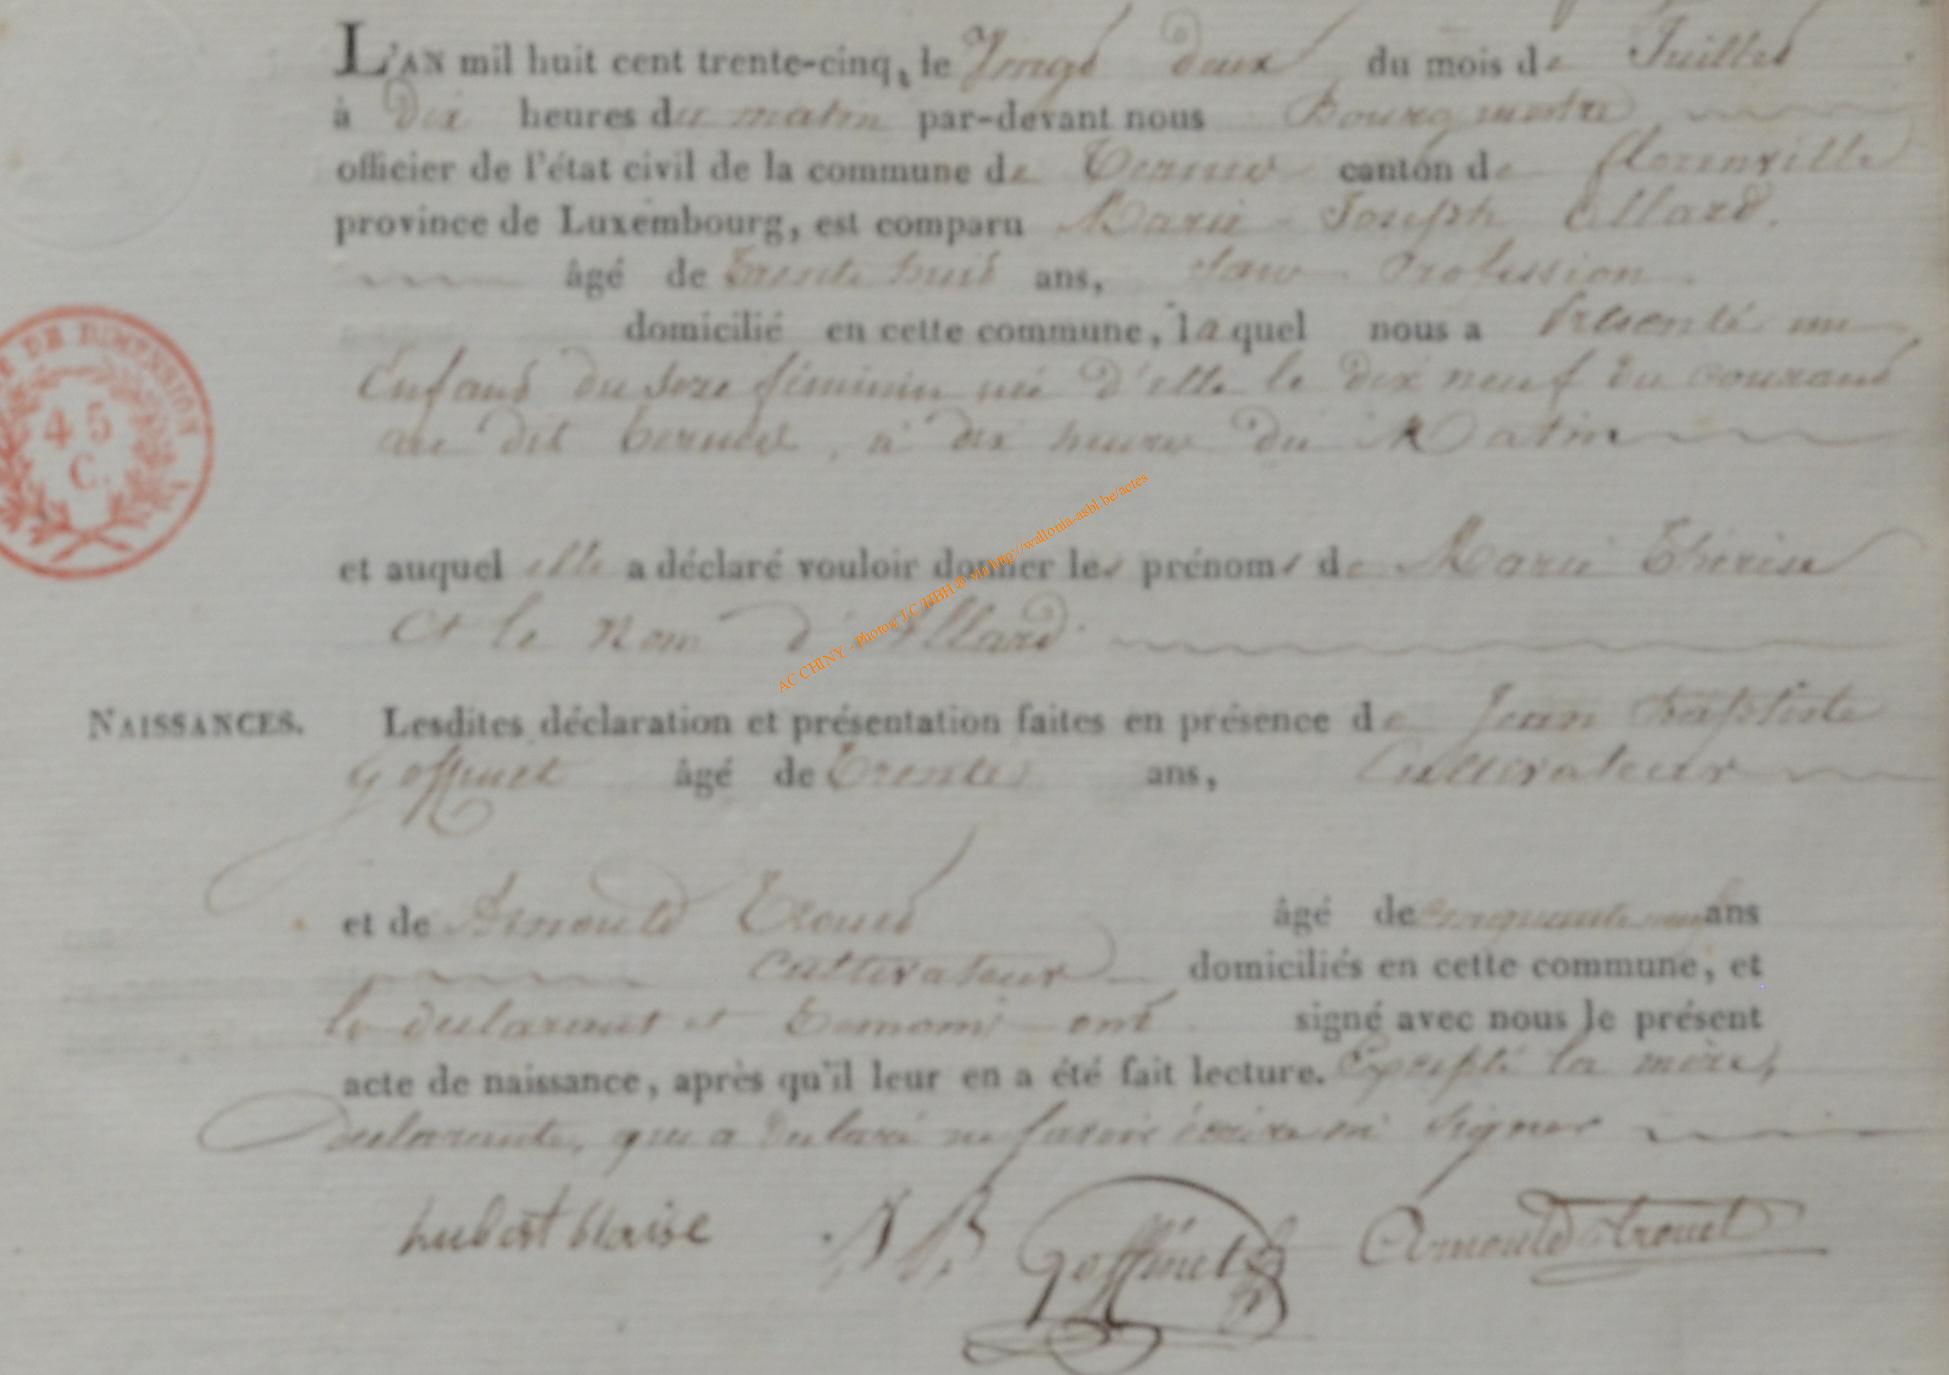 L'AN mil huit cent trente-cinq, le Vingt deux du mois de Juillet
à Dix heures du matin par-devant nous Bourgmestre
officier de l'état civil de la commune de Termes canton de florenville
province de Luxembourg, est comparu Marie Joseph Allard.
âgé de Trente huit ans, sans Profession
domicilié en cette commune, laquel nous a Présenté un
Enfant du sexe féminin née d'elle le dix neuf du courant
au dit Termes, à dix heures du Matin
et auquel elle a déclaré vouloir donner les prénoms de Marie Therese
Et le Nom d'Allard
NAISSANCES. Lesdites déclaration et présentation faites en présence de Jean Baptiste
Goffinet âgé de Trente ans, Cultivateur
et de Arnould Trouet âgé de cinquante neuf ans
Cultivateur domiciliés en cette commune, et
le declarant et temoins ont signé avec nous le présent
acte de naissance, après qu'il leur en a été fait lecture. Excepté la mère,
declarante, qui a declaré ne savoir écrire ni signer
hubert blaise J B Goffinet Arnould trouet
DE DIMENSION
45
C.
AC CHINY - Photog LC/HBH ® via http://wallonia-asbl.be/actes